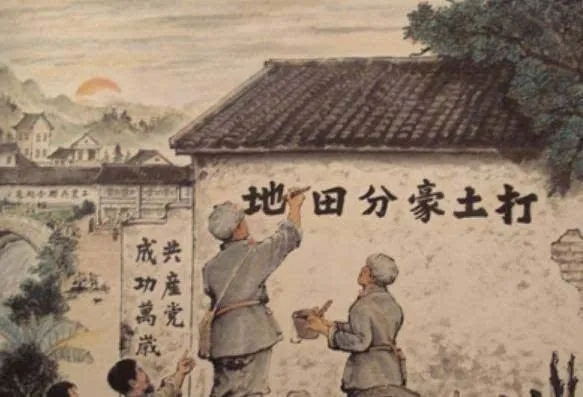 打土豪分田地
共産党
成功萬歲